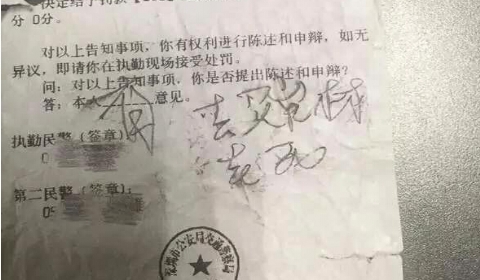 决定给予罚款
分 0分。
对以上告知事项，你有权利进行陈述和申辩，如无
异议，即请你在执勤现场接受处罚。
问：对以上告知事项，你是否提出陈述和申辩？
答：本人 有 意见。
去 材
去死
执勤民警（签章）
0
第二民警（签章）：
09
深圳市公安局交通警察局